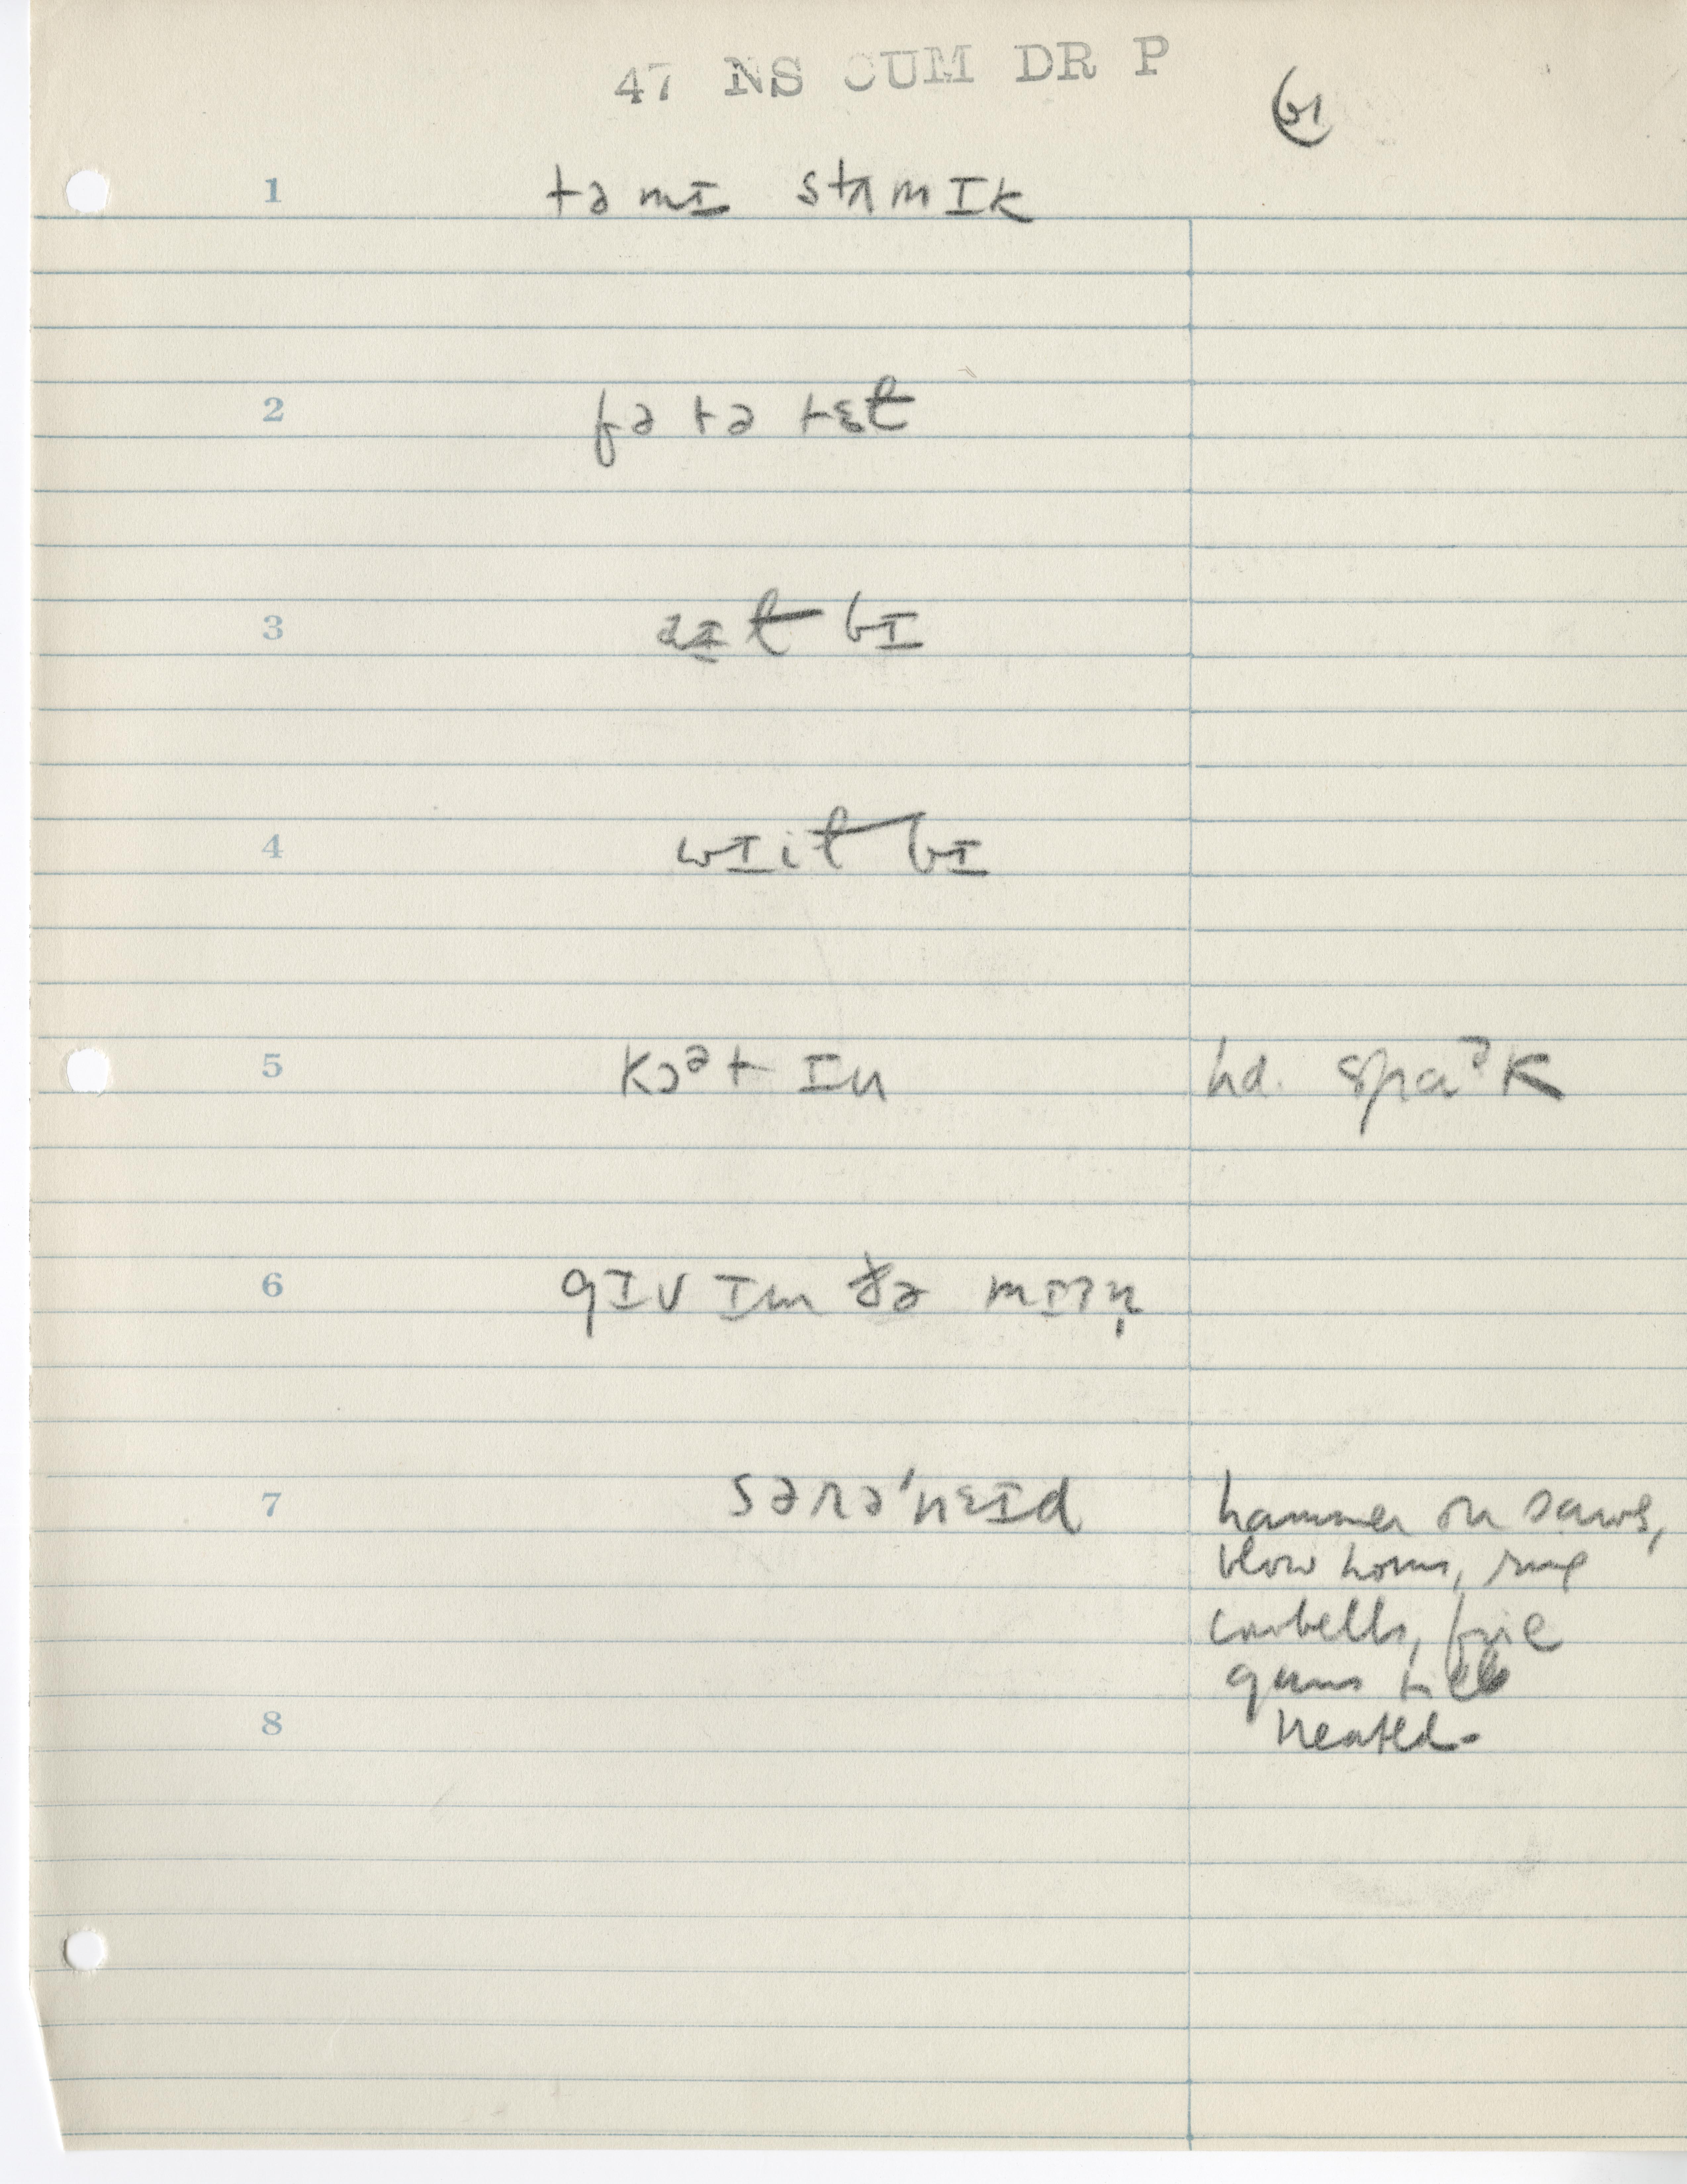 47 NS CUM DR P
61
1 tə mɪ stʌmɪk
2 fə tə tɛl
3 aɪl bɪ
4 wɪil bɪ
5 kɔᵊt ɪn hd. spaᵊk
6 gɪv ɪm ðə mɪʔn̩
7 sɛrəˈnɛɪd hammer on saws,
blow horns, ring
cowbells, fire
guns till
8 treated.